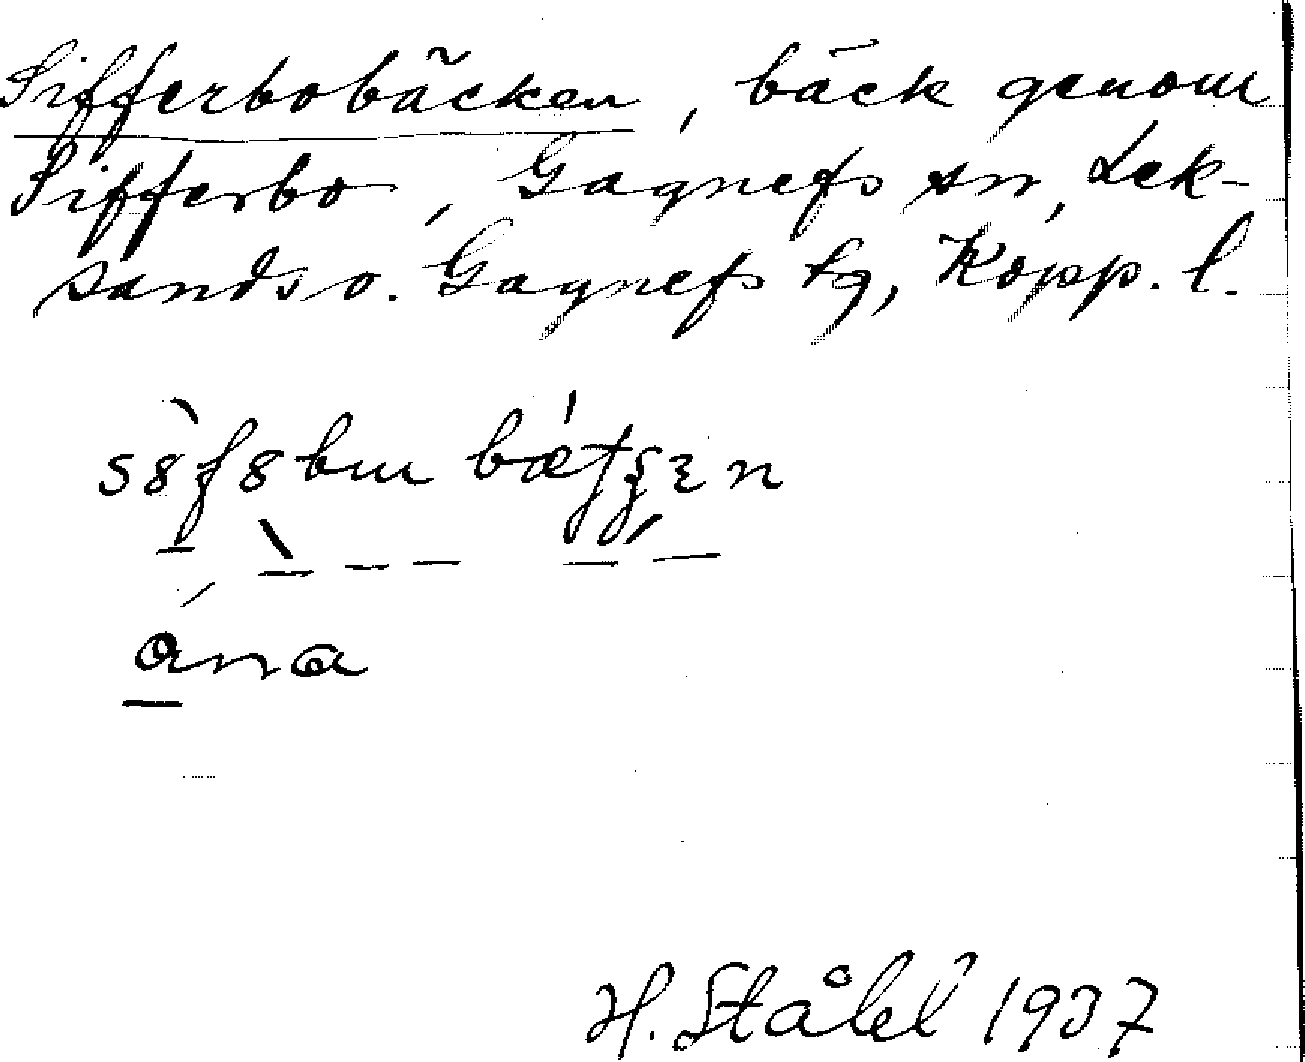 Sifferbobäcken, bäck genom
Sifferbo, Gagnefs sn, Lek-
sands o. Gagnefs tg, Kopp. l.
åna
H. Ståhl 1937